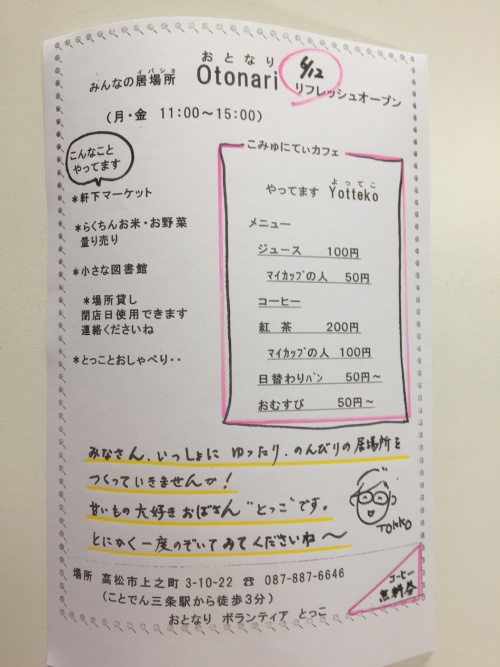 おとなり
みんなの居場所 Otonari 6/12
イバショ
リフレッシュオープン
(月・金 11:00～15:00)
こんなこと
やってます
*軒下マーケット
*らくちんお米・お野菜
量り売り
*小さな図書館
*場所貸し
閉店日使用できます
連絡くださいね
*とっことおしゃべり・・
こみゅにてぃカフェ
よってこ
やってます Yotteko
メニュー
ジュース 100円
マイカップの人 50円
コーヒー
紅 茶 200円
マイカップの人 100円
日替わりパン 50円～
おむすび 50円～
みなさん、いっしょに ゆったり、のんびりの居場所を
つくっていきませんか!
甘いもの大好きおばさん"とっこ"です。
とにかく一度のぞいてみてくださいね～
TOKKO
場所 高松市上之町 3-10-22 ☎ 087-887-6646
(ことでん三条駅から徒歩3分)
おとなり ボランティア とっこ
コーヒー
無料券